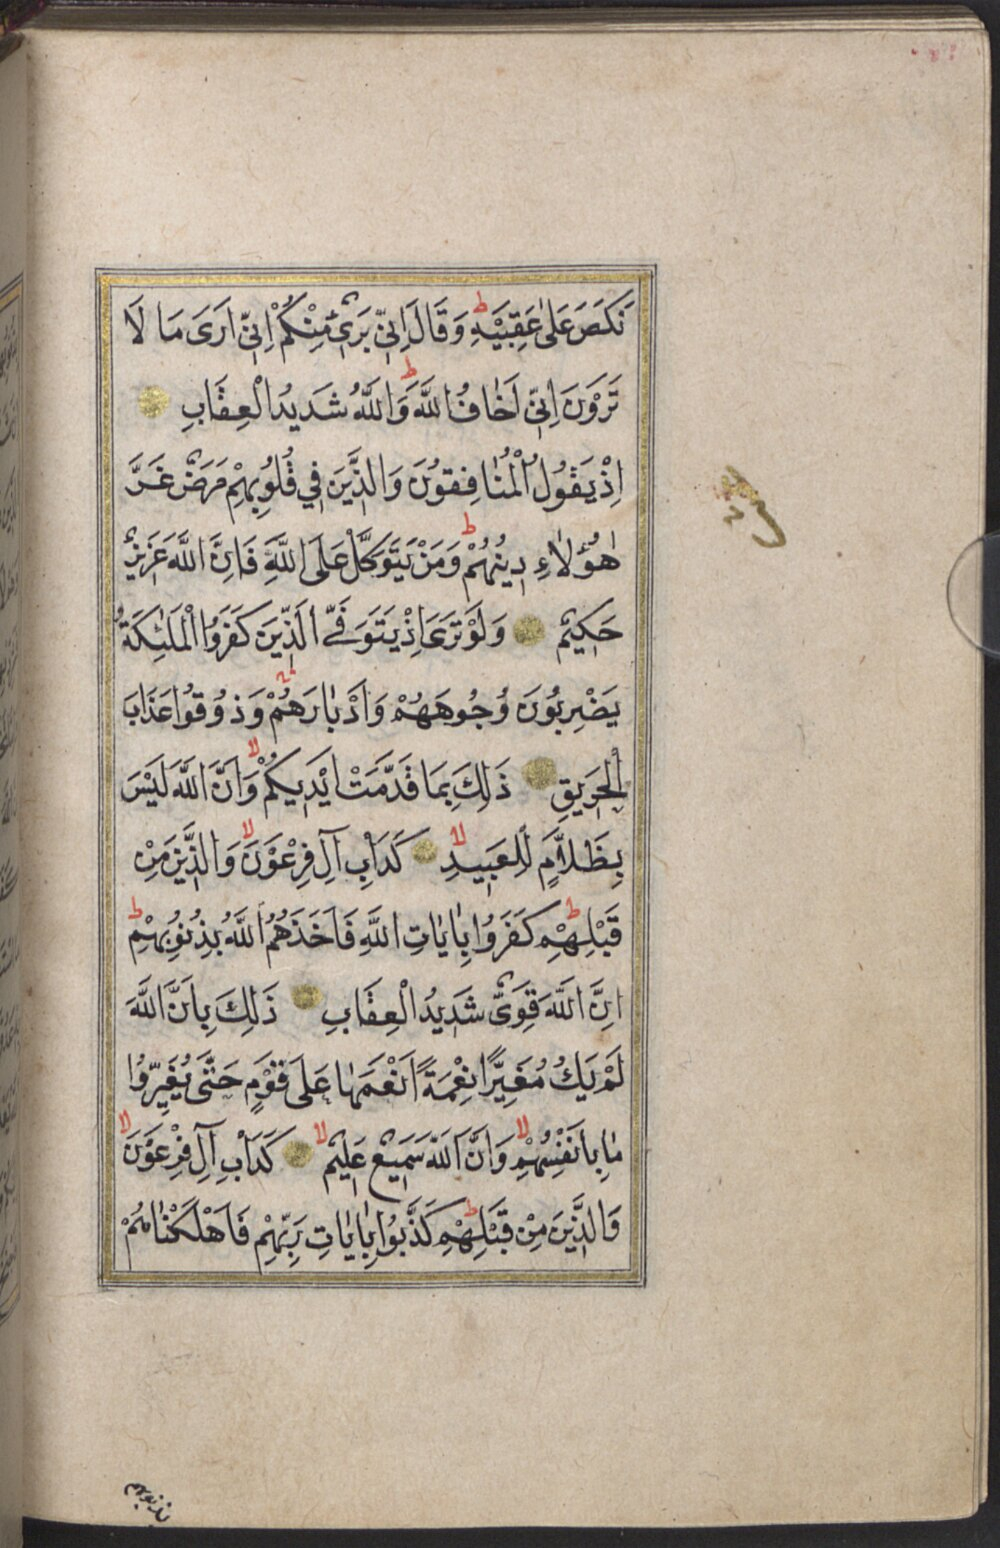 نَكَصَ عَلٰى عَقِبَيْهِ ط وَقَالَ اِنّ۪ي بَر۪ئٌ مِنْكُمْ اِنّ۪ي اَرَى مَا لَا
تَرَوْنَ اِنّ۪ي اَخَافُ اللّٰهَ ط وَاللّٰهُ شَد۪يدُ الْعِقَابِ
اِذْ يَقُولُ الْمُنَافِقُونَ وَالَّذ۪ينَ ف۪ي قُلُوبِهِمْ مَرَضٌ غَرَّ
هٰؤُلَاءِ د۪ينُهُمْ ط وَمَنْ يَتَوَكَّلْ عَلَى اللّٰهِ فَاِنَّ اللّٰهَ عَز۪يزٌ
حَك۪يمٌ وَلَوْ تَرَى اِذْ يَتَوَفَّى الَّذ۪ينَ كَفَرُوا الْمَلٰئِكَةُ
يَضْرِبُونَ وُجُوهَهُمْ وَاَدْبَارَهُمْ وَذُوقُوا عَذَابَ
الْحَر۪يقِ ذٰلِكَ بِمَا قَدَّمَتْ اَيْد۪يكُمْ لا وَاَنَّ اللّٰهَ لَيْسَ
بِظَلَّامٍ لِلْعَب۪يدِ لا كَدَاْبِ آلِ فِرْعَوْنَ لا وَالَّذ۪ينَ مِنْ
قَبْلِهِمْ ط كَفَرُوا بِاٰيَاتِ اللّٰهِ فَاَخَذَهُمُ اللّٰهُ بِذُنُوبِهِمْ ط
اِنَّ اللّٰهَ قَوِيٌّ شَد۪يدُ الْعِقَابِ ذٰلِكَ بِاَنَّ اللّٰهَ
لَمْ يَكُ مُغَيِّرًا نِعْمَةً اَنْعَمَهَا عَلَى قَوْمٍ حَتَّى يُغَيِّرُوا
مَا بِاَنْفُسِهِمْ لا وَاَنَّ اللّٰهَ سَم۪يعٌ عَل۪يمٌ لا كَدَاْبِ آلِ فِرْعَوْنَ لا
وَالَّذ۪ينَ مِنْ قَبْلِهِمْ ط كَذَّبُوا بِاٰيَاتِ رَبِّهِمْ فَاَهْلَكْنَاهُمْ
بذنوبهم